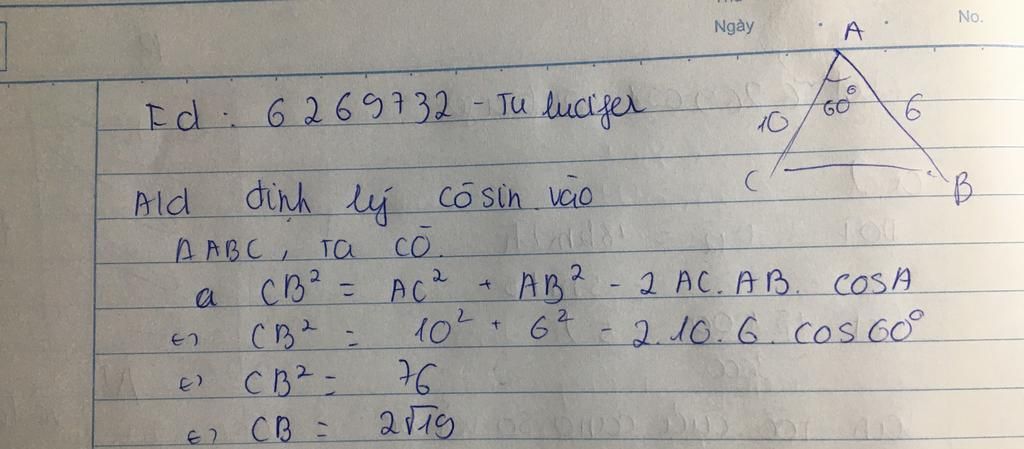 Ngày
No.
Id: 6269732 - Tu lucifer
A
60°
10
6
C
B
Ald định lý cōsin vào
ΔABC, ta cō.
a CB² = AC² + AB² - 2 AC. AB. cosA
⇔ CB² = 10² + 6² - 2.10.6. cos60°
⇔ CB² = 76
⇔ CB = 2√19